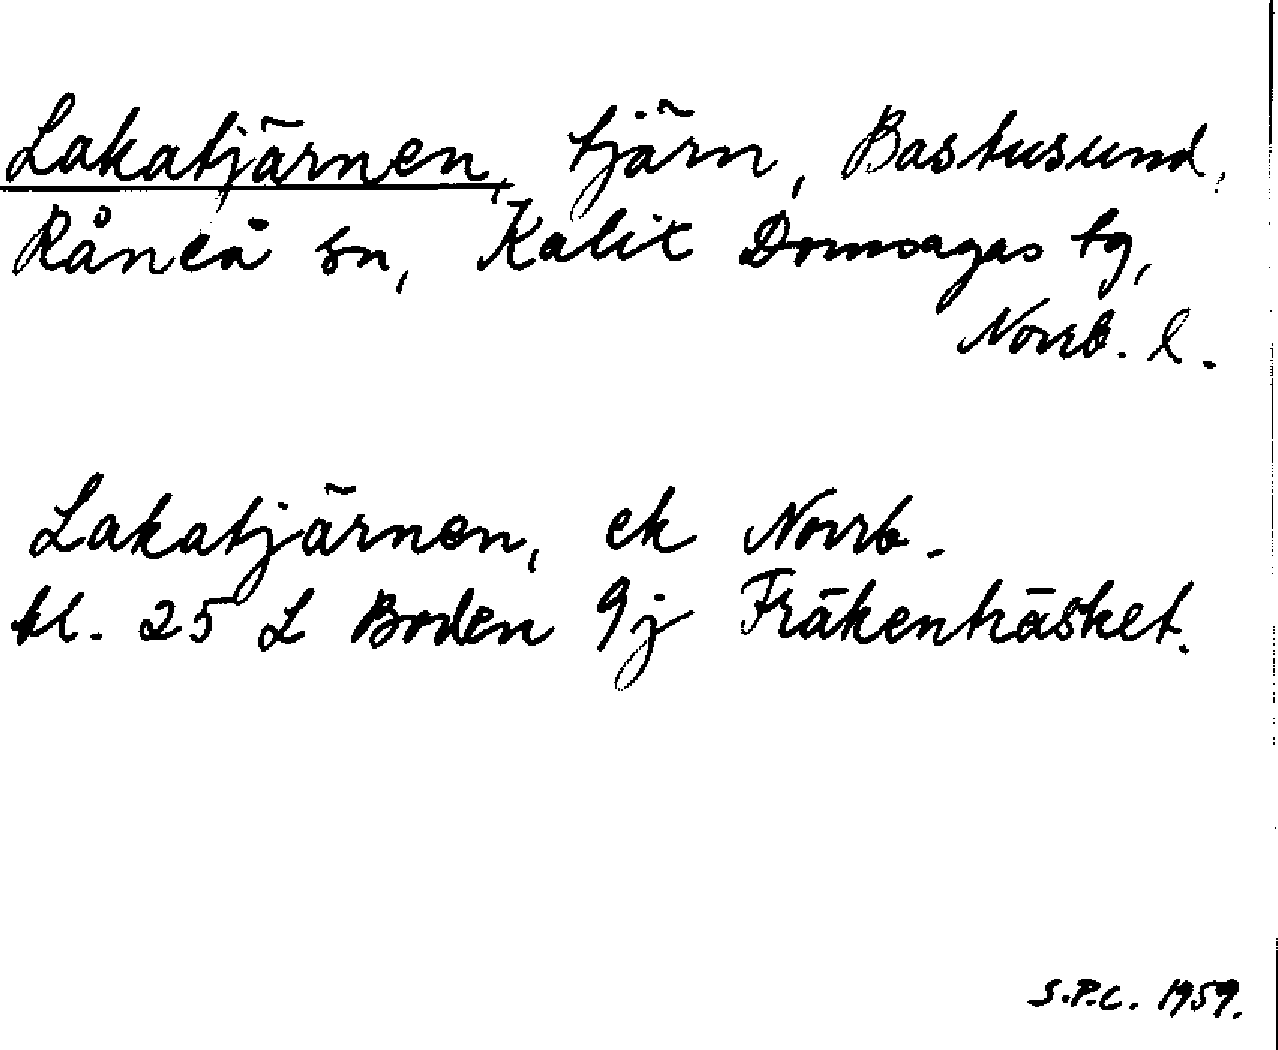 Lakatjärnen, tjärn, Bastusund,
Råneå sn, Kalix Domsagas tg,
Norrb. l.
Lakatjärnen, ek Norrb.
bl. 25 L Boden 9j Fräkenträsket.
S.P.C. 1959.